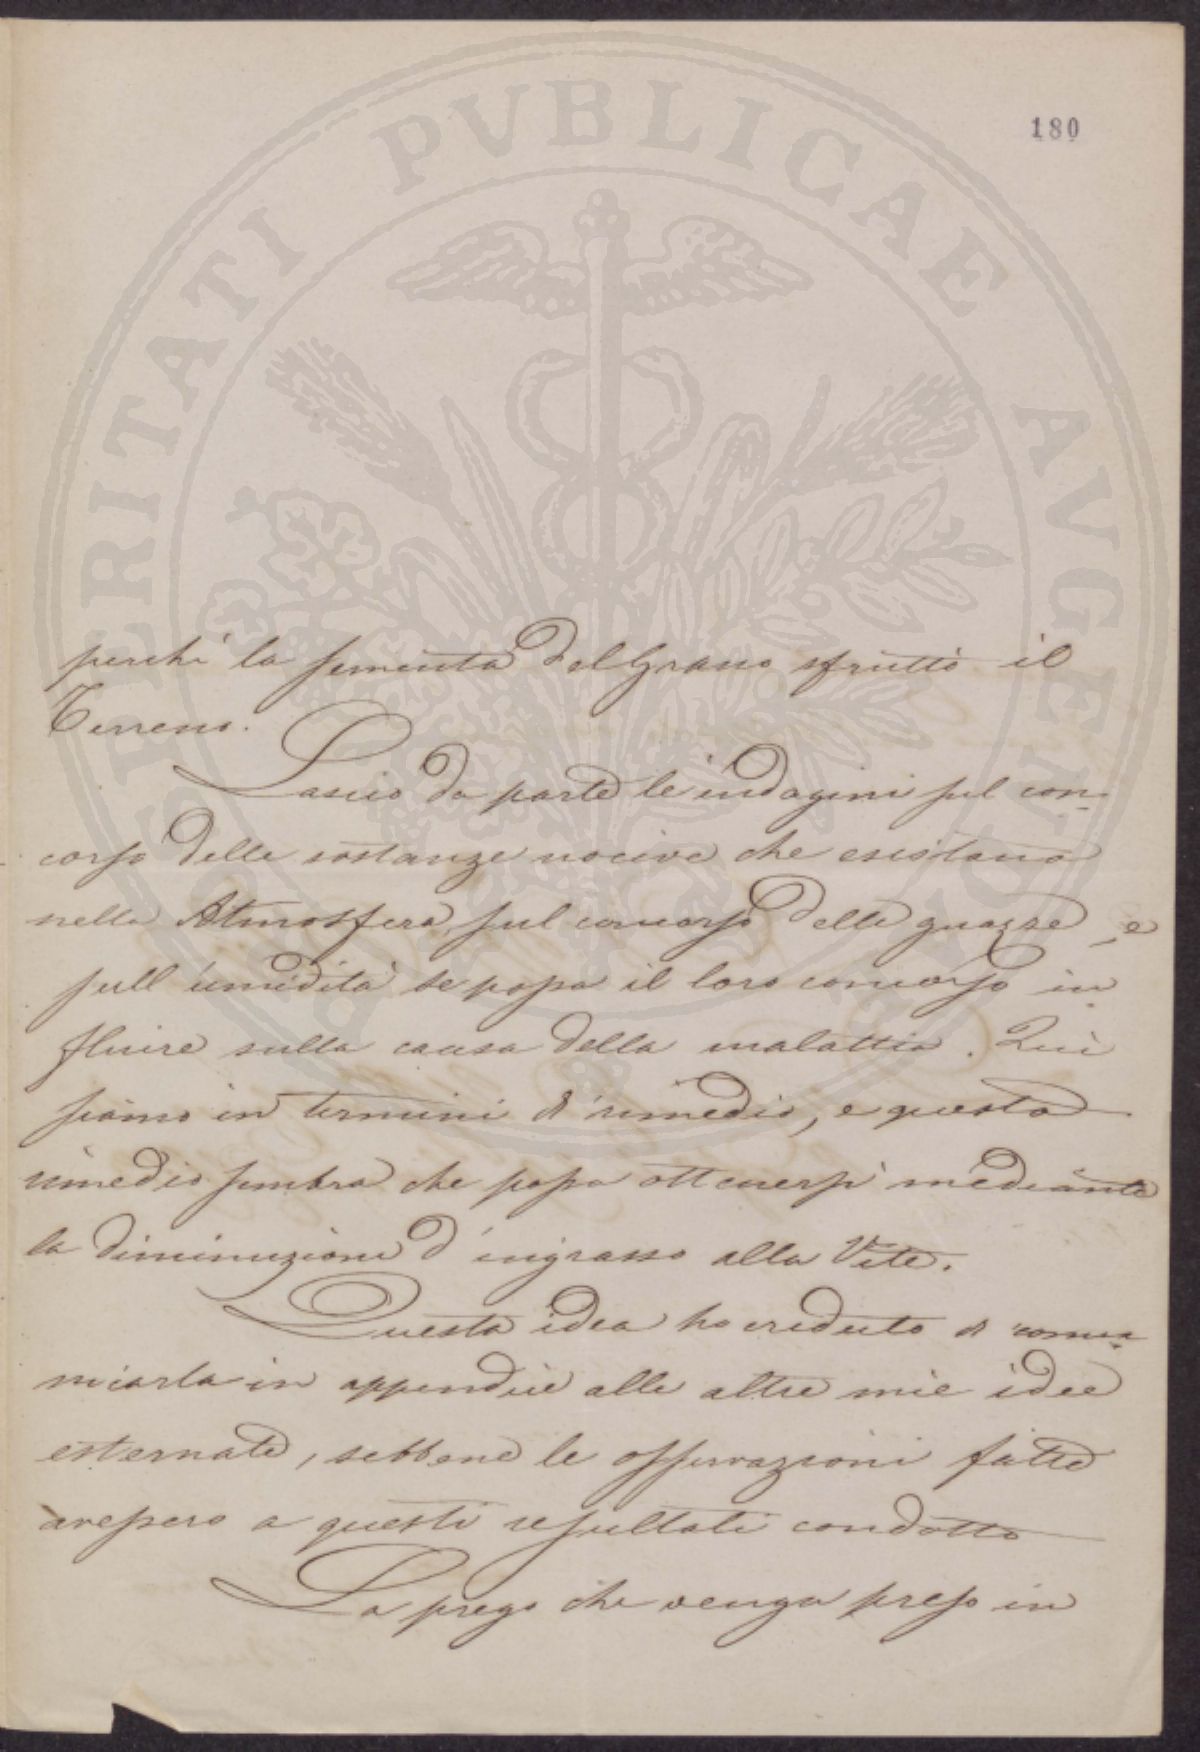 180
PROSPERITATI PVBLICAE AVGENDAE
perchè la sementa del Grano sfruttò il
Terreno.
Lascio da parte le indagini sul con-
corso delle sostanze nocive che esistano
nella Atmosfera, sul concorso delle guazze, e
sull'umidità se possa il loro concorso in-
fluire sulla causa della malattia. Quì
siamo in termini di rimedio, e questo
rimedio sembra che possa ottenersi mediante
la diminuzione d'ingrasso alla Vite.
Questa idea ho creduto di comu-
nicarla in appendice alle altre mie idee
esternate, sebbene le osservazioni fatte
avessero a questi resultati condotto
La prego che venga preso in